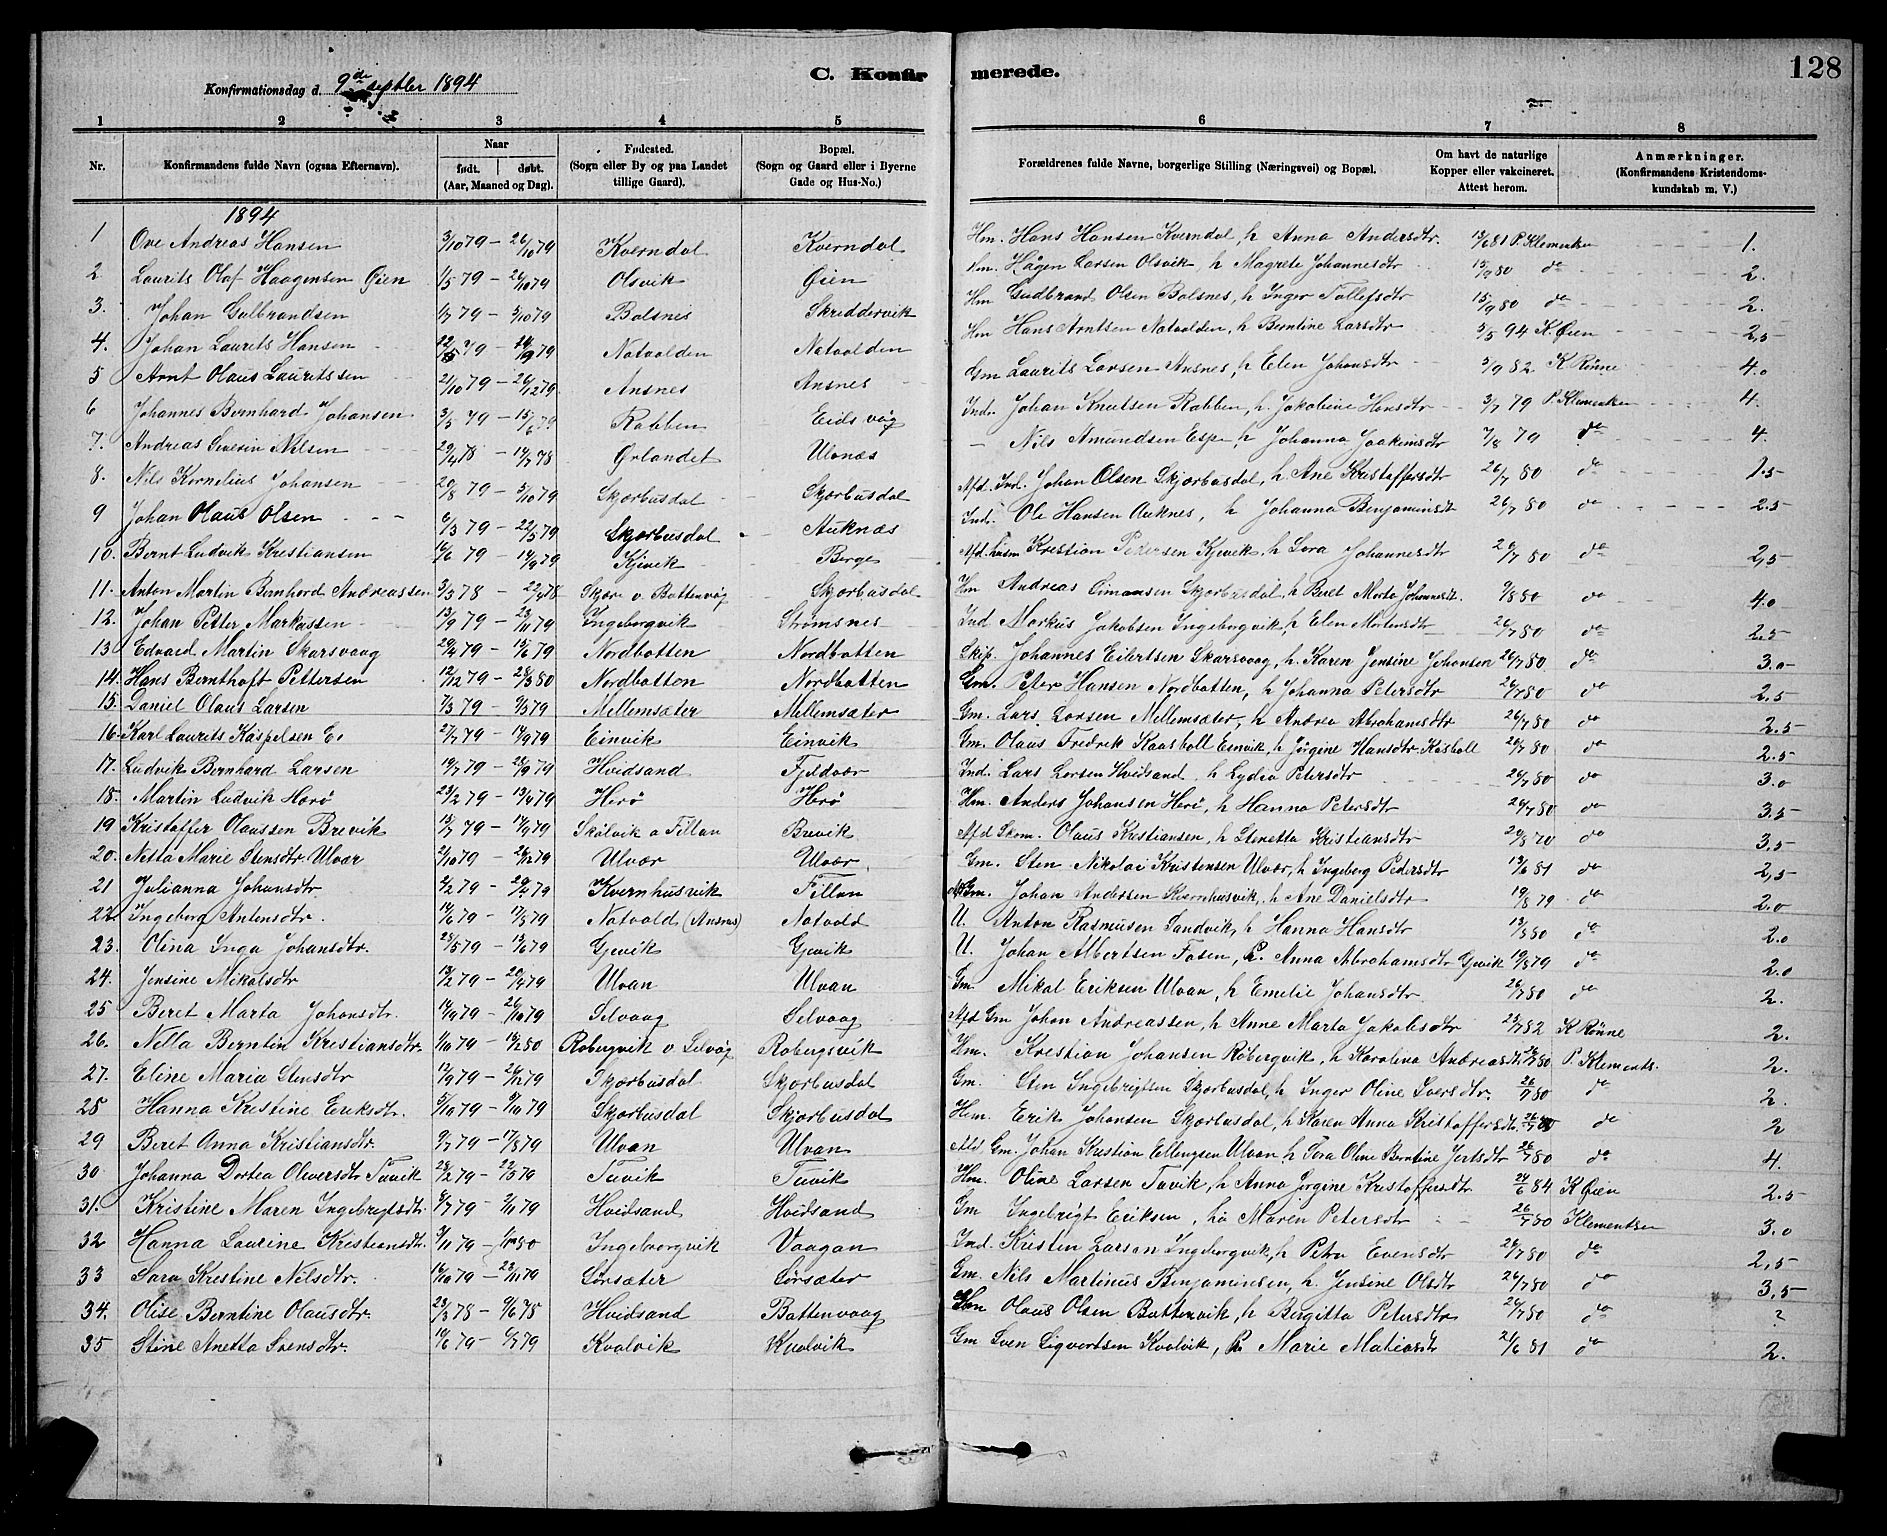 128
C. Konfirmerede.
Konfirmationsdag d. 9de septbr 1894
1 2 3 4 5 6 7 8
Nr. Konfirmandens fulde Navn (ogsaa Efternavn). Naar født. døbt. (Aar, Maaned og Dag). Fødested. (Sogn eller By og paa Landet tillige Gaard). Bopæl. (Sogn og Gaard eller i Byerne Gade og Hus-No.) Forældrenes fulde Navne, borgerlige Stilling (Næringsvei) og Bopæl. Om havt de naturlige Kopper eller vakcineret. Attest herom. Anmærkninger. (Konfirmandens Kristendomskundskab m. V.)
1894
1 Ove Andreas Hansen 3/10 79 – 26/10 79 Kverndal Kverndal Hm. Hans Hansen Kverndal, h Anna Andersdtr. 13/6 81 P. Klementsen 1.
2. Laurits Olaf Haagensen Øien 1/5 79 – 26/10 79 Olsvik Øien Hm. Hågen Larsen Olsvik, h Magrete Johannesdtr 15/9 80 do 2.
3. Johan Gulbrandsen 79 – 5/10 79 Bolsnes Skreddervik Hm Gudbrand Olsen Bolsnes, h Inger Tollefsdtr 15/9 80 do 2.
4. Johan Laurits Hansen 22/5 79 – 79 Natvolden Natvolden Hm Hans Arntsen Natvolden, h Berntine Larsdtr 3/5 94 K. Øien 2,5
5 Arnt Olaus Lauritssen 21/10 79 – 26/12 79 Ansnes Ansnes Gm Laurits Larsen Ansnes, h Elen Johansdtr 3/9 82 K Rønne 4.0
6 Johannes Bernhard Johansen 3/5 79 – 15/6 79 Rabben Eidsvåg Ind. Johan Knutsen Rabben, h. Jakobine Hansdtr 3/7 79 P. Klementsen 4.
7. Andreas Severin Nilsen 29/4 78 – 14/7 78 Ørlandet Ulvnæs – Nils Amundsen Esp, h Johanna Joakimsdtr 7/8 79 do 4.
8. Nils Kornelius Johansen 20/8 79 – 5/10 79 Skjærbusdal Skjærbusdal Afd. Ind. Johan Olsen Skjærbusdal, h Ane Kristoffersdtr 26/7 80 do 1.5
9 Johan Olaus Olsen 6/3 79 – 22/5 79 Skjærbusdal Auknæs Ind. Ole Hansen Auknes, h Johanna Benjaminsdt 26/7 80 do 2.5
10. Bernt Ludvik Kristiansen 16/6 79 – 14/9 79 Kjevik Berge Afd. husm Krestian Petersen Kjevik, h Lora Johannesdtr 26/7 80 do 2,5
11. Anton Martin Bernhard Andreassen 3/3 78 – 22/4 78 Skjære v. Battenvåg Skjærbusdal Hm Andreas Simonsen Skjærbusdal, h Beret Marta Johannesdt. 9/8 80 do 4.0
12. Johan Petter Markussen 13/9 79 – 23/11 79 Ingeborgvik Strømsnes Ind. Markus Jakobsen Ingeborgvik, h Elen Mortensdtr 26/7 80 do 2.5
13 Edvard Martin Skarsvaag 29/4 79 – 15/6 79 Nordbotten Nordbotten Skip. Johannes Eilertsen Skarsvaag, h. Karen Jensine Johansen 26/7 80 do 3.0
14. Hans Bernthoft Pettersen 12/12 79 – 28/3 80 Nordbotten Nordbotten Gm. Peter Hansen Nordbotten, h Johanna Petersdtr 26/7 80 do 2.5
15. Daniel Olaus Larsen 7/3 79 – 79 Mellemsæter Mellemsæter Gm. Lars Larsen Mellemsæter, h Andrea Abrahamsdtr 26/7 80 do 2.5
16. Karl Laurits Kaspelsen E. 27/7 79 – 14/9 79 Einvik Einvik Gm. Olaus Fredrik Kaasboll Einvik, h Jørgine Hansdtr Kåsboll 26/7 80 do 2.5
17. Ludvik Bernhard Larsen 19/7 79 – 28/9 79 Hvidsand Fjeldvær Ind. Lars Larsen Hvidsand, h Lydia Petersdtr 26/7 80 do 3.0
18. Martin Ludvik Herø 23/2 79 – 13/4 79 Herø Herø Hm. Anders Johansen Herø, h Hanna Petersdtr 26/7 80 do 3.5
19 Kristoffer Olaussen Brevik 13/7 79 – 14/9 79 Skålvik o Fillan Brevik Afd Skom. Olaus Kristiansen, h Stenetta Kristiansdtr 20/8 70 do 3.5
20. Netta Marie Stensdtr Ulvær 2/10 79 – 26/12 79 Ulvær Ulvær Gm. Sten Nikolai Kristensen Ulvær, h Ingeborg Pedersdtr 13/6 81 do 2,5
21 Julianna Johansdtr 2/2 79 – 20/4 79 Kvernhusvik Fillan Gm. Johan Andersen Kvernhusvik, h Ane Danielsdtr 19/8 79 do 2.0
22 Ingeborg Antonsdtr. 14/6 79 – 17/8 79 Natvold (Ansnes) Natvold U. Anton Rasmusen Sandvik, h Hanna Hansdtr 13/8 80 do 2.0
23. Olina Inga Johansdtr. 28/5 79 – 15/6 79 Gjevik Gjevik U. Johan Albertsen Fosen, h. Anna Abrahamsdtr Gjevik 19/8 79 do 2.0
24. Jensine Mikalsdtr 13/2 79 – 20/4 79 Ulvan Ulvan Gm. Mikal Eriksen Ulvan, h Emelie Johansdtr 26/7 80 do 2.
25 Beret Marta Johansdtr. 14/9 79 – 26/10 79 Selvaag Selvaag Afd Gm Johan Andreassen, h Anne Marta Jakobsdtr 25/7 82 K Rønne 2.
26. Nella Berntin Kristiansdtr 1/10 79 – 15/2 80 Robergvik v. Selvåg Robergsvik Hm. Krestian Johansen Røbergvik, h Karolina Andreasdt. 26/7 80 P. Klements. 2.
27. Eline Maria Stensdtr 13/9 79 – 26/12 79 Skjærbusdal Skjærbusdal Gm. Sten Ingebrigtsen Skjærbusdal, h Inger Oline Iversdtr. 26/7 80 do 2.
28 Hanna Kristine Eriksdtr. 5/10 79 – 9/10 79 Skjærbusdal Skjærbusdal Hm. Erik Johansen Skjærbusdal, h Karen Anna Kristoffersdtr. 26/7 80 do 2
29 Beret Anna Kristiansdtr. 9/7 79 – 17/8 79 Ulvan Ulvan Afd Gm. Johan Kristian Ellingsen Ulvan, h Tora Oline Berntine Jertsdtr 26/7 80 do 4.
30 Johanna Dortea Oliversdtr Tuvik 28/2 79 – 22/5 79 Tuvik Tuvik Hm. Oline Larsen Tuvik, h Anna Jørgine Kristoffersdtr 24/6 84 K Øien 2.5
31. Kristine Maren Ingebrigtsdtr. 79 – 2/11 79 Hvidsand Hvidsand Gm Ingebrigt Eriksen, h Maren Petersdtr 26/7 80 Klementsen 3.0
32 Hanna Laurine Kristiansdtr. 9/11 79 – 80 Ingeborgvik Vaagan Ind. Kristen Larsen Ingeborgvik, h Petra Evensdtr 26/7 80 do 2,5
33 Sara Kristine Nilsdtr. 16/10 79 – 23/11 79 Sørsæter Sørsæter Gm. Nils Martinus Benjaminsen, h. Jensine Olsdtr 26/7 80 do 3,5
34. Olise Berntine Olausdtr. 23/3 78 – 9/6 78 Hvidsand Battenvaag Hm Olaus Olsen Battenvik, h Bergitta Petersdtr 26/7 80 do ?
35 Stine Anetta Svensdtr. 16/6 79 – 6/7 79 Kvalvik Kvalvik Gm Sven Sigvertsen Kvalvik, h Marie Matiasdtr 21/6 81 do 2.